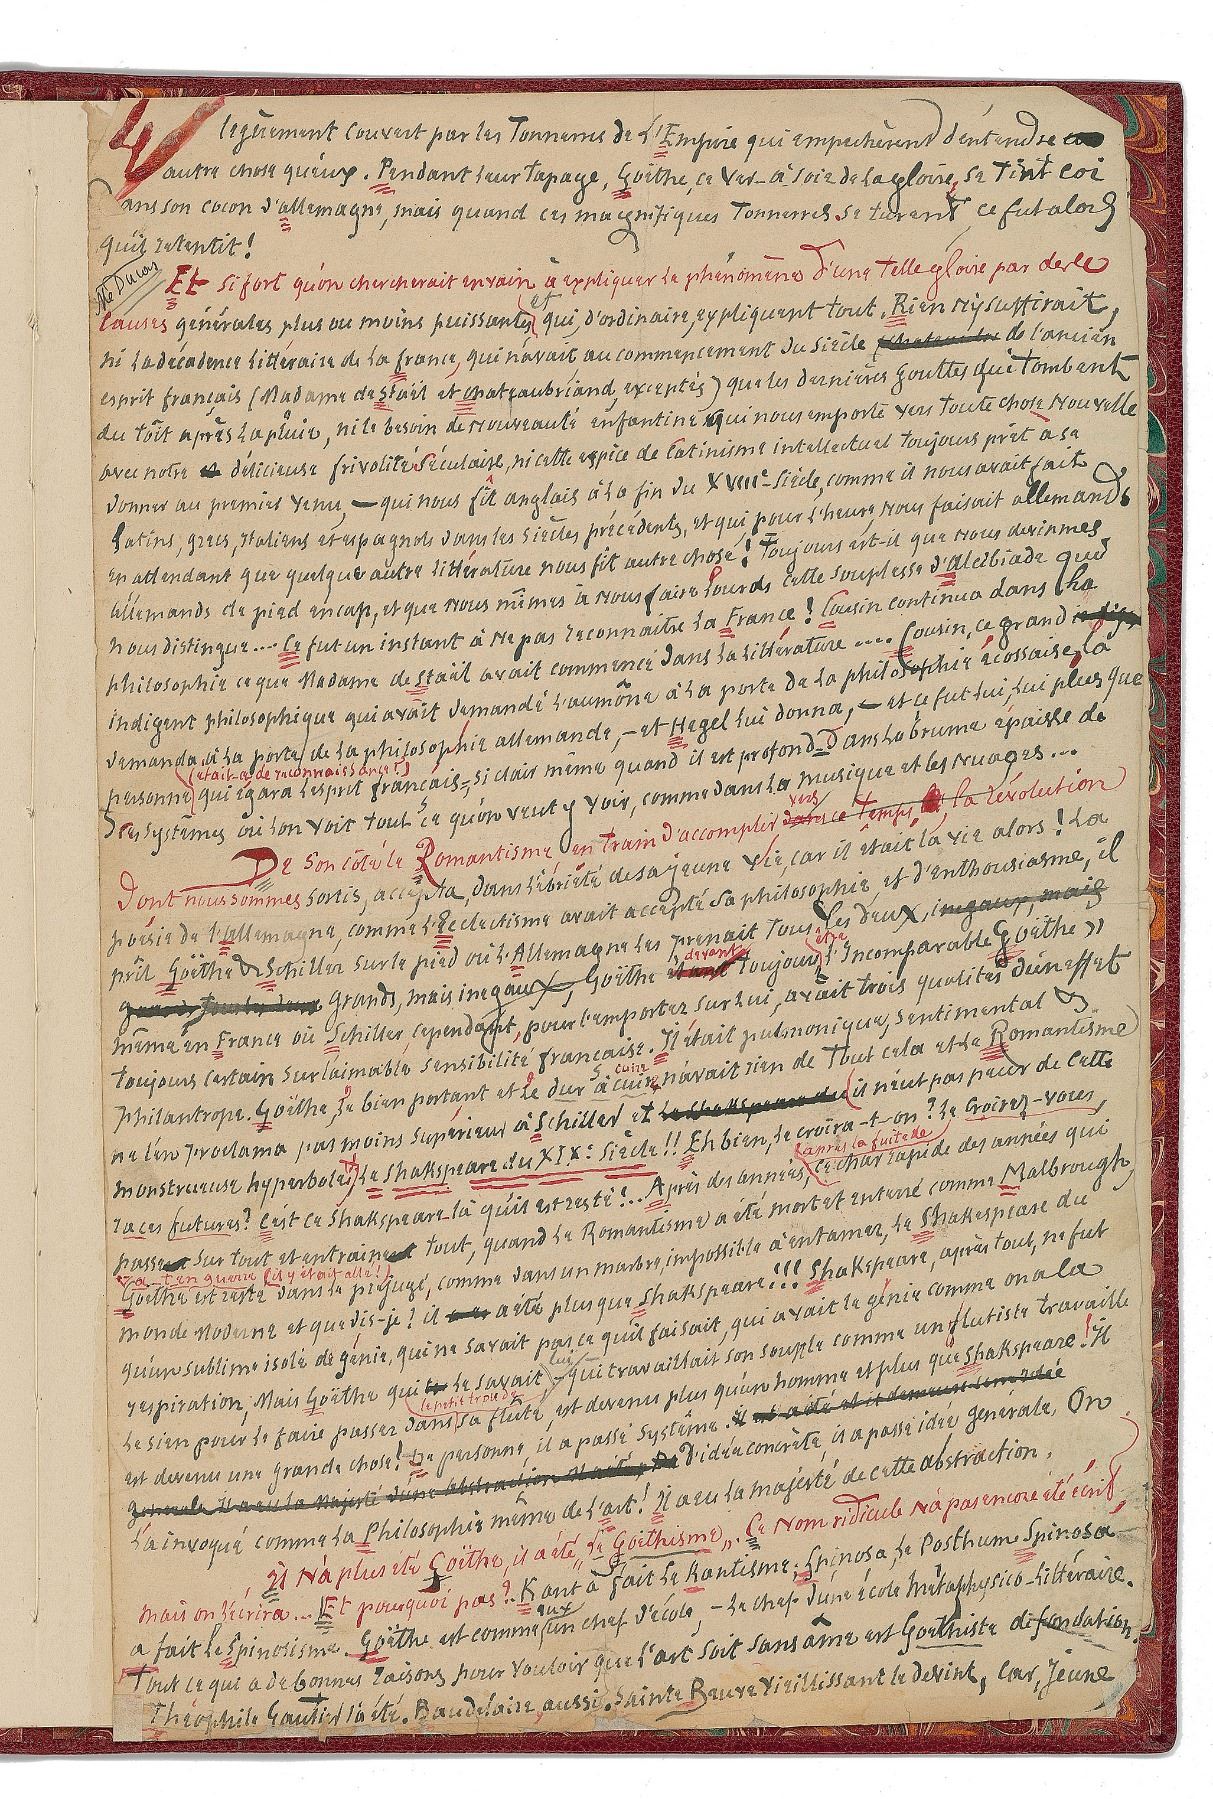 4
légèrement couvert par les Tonnerres de L'Empire qui empechèrent d'entendre
autre chose qu'eux. Pendant leur tapage, Goëthe, ce ver-à-soie de la gloire, se Tint coi
dans son cocon d'allemagne, mais quand ces magnifiques Tonnerres se turent ce fut alors
qu'il retentit!
Et si fort qu'on chercherait en vain à expliquer le phénomène d'une telle gloire par de ces
Causes générales plus ou moins puissantes et qui, d'ordinaire, expliquent tout. Rien n'y suffirait,
ni la décadence littéraire de la france, qui n'avait au commencement du siècle de l'ancien
esprit français (Madame de Staël et Chateaubriand exceptés) que les dernières gouttes qui tombent
du tôit après la pluie, ni le besoin de nouveauté enfantine qui nous emporte vers toute chose nouvelle
avec notre délicieuse frivolité séculaire, ni cette espèce de latinisme intellectuel toujours prêt à se
donner au premier venu, — qui nous fit anglais à la fin du XVIIIe siècle, comme il nous avait fait
latins, grecs, italiens et espagnols dans les siècles précédents, et qui, pour l'heure, nous faisait allemands
en attendant que quelque autre littérature nous fît autre chose! Toujours est-il que nous devinmes
allemands de pied en cap, et que nous mîmes à nous faire lourds cette souplesse d'Alcibiade qui
nous distingue.... Ce fut un instant à ne pas reconnaitre la France! Cousin continua dans la
philosophie ce que Madame de Staël avait commencé dans la littérature.... Cousin, ce grand
indigent philosophique qui avait demandé l'aumône à la porte de la philosophie écossaise, la
demanda à la porte de la philosophie allemande, — et Hegel lui donna, — et ce fut lui, lui plus que
(était-ce de reconnaissance?)
personne qui égara l'esprit français, si clair même quand il est profond dans la brume épaisse de
ses systêmes où l'on voit tout ce qu'on veut y voir, comme dans la musique et les nuages...
De son côté le Romantisme, en train d'accomplir vers dans ce temps là la révolution
dont nous sommes sortis, accepta, dans l'ébriété de sa jeune vie, car il était la vie alors! la
poésie de l'allemagne, comme l'Eclectisme avait accepté sa philosophie, et d'enthousiasme, il
prît Goëthe & Schiller sur le pied où l'Allemagne les prenait tous les deux, inégaux, mais
grands, mais inegaux, Goëthe devant toujours être l'Incomparable Goëthe »
même en France où Schiller, cependant, pour l'emporter sur lui, avait trois qualités d'un effet
toujours certain sur l'aimable sensibilité française. Il était pulmonique, sentimental &
philantrope. Goëthe, le bien portant et le dur à cuire n'avait rien de tout cela et le Romantisme
ne l'en proclama pas moins supérieur à Schiller et il n'eut pas peur de cette
monstrueuse hyperbole: Le Shakspeare du XIXe Siècle!! Eh bien, le croira-t-on? Le croirez-vous,
races futures? C'est ce Shakspeare-là qu'il est resté!.. Après des années, (après la fuite de ce char rapide des années qui
passe sur tout et entraine tout, quand le Romantisme a été mort et enterré comme Malbrough
va-t-en guerre (il y était allé!)
Goëthe est resté dans le préjugé, comme dans un marbre, impossible à entamer, le Shakespeare du
monde Moderne et que dis-je? il a été plus que Shakspeare!!! Shakspeare, après tout, ne fut
qu'un sublime isolé de génie, qui ne savait pas ce qu'il faisait, qui avait le génie comme on a la
respiration, Mais Goëthe qui le savait lui — qui travaillait son souffle comme un flutiste travaille
le sien pour le faire passer dans (le petit trou de) sa flûte, est devenu plus qu'un homme et plus que Shakspeare! Il
est devenu une grande chose! De personne, il a passé Systême. Il a été et il demeure une idée
générale. Il a eu la Majesté d'une abstraction D'idée concrète il a passé idée générale. On
l'a invoqué comme la Philosophie même de l'art! Il a eu la majesté de cette abstraction.
Il n'a plus été Goëthe, il a été „Le Goëthisme„. Ce nom ridicule n'a pas encore été écrit,
mais on l'écrira... Et pourquoi pas?.. Kant a fait le Kantisme; Spinosa, le Posthume Spinosa
a fait le Spinosisme. Goëthe est comme eux un chef d'école, — le chef d'une école métaphysico-littéraire.
Tout ce qui a de bonnes raisons pour vouloir que l'art soit sans âme est Goëthiste de fondation.
Théophile Gautier l'a été. Baudelaire aussi. Sainte Beuve vieillissant le devint, car, jeune